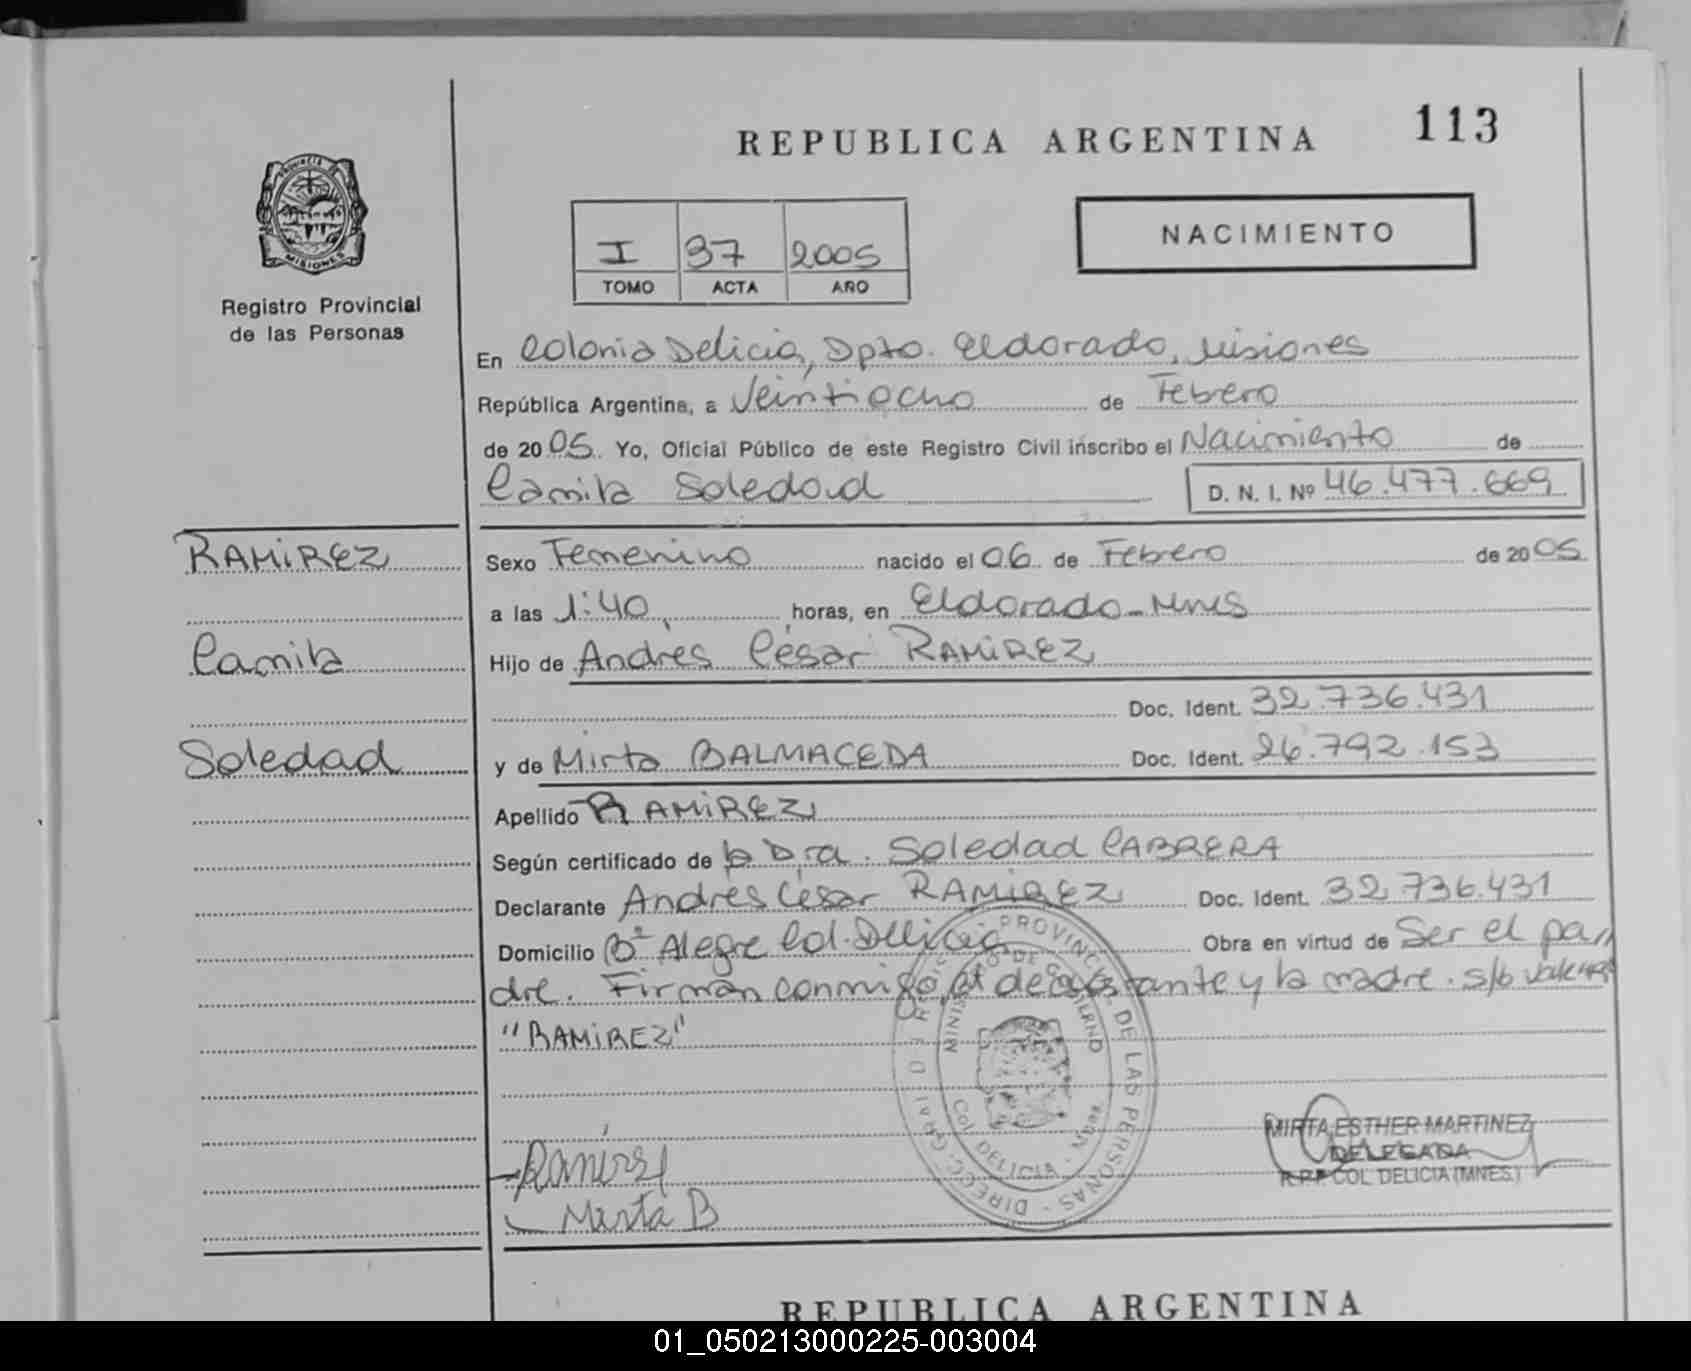 REPUBLICA ARGENTINA
113
PROVINCIA DE
MISIONES
Registro Provincial
de las Personas
I 37 2005
TOMO ACTA AÑO
NACIMIENTO
En Colonia Delicia, Dpto. Eldorado, Misiones
República Argentina, a Veintiocho de Febrero
de 2005. Yo, Oficial Público de este Registro Civil inscribo el Nacimiento de
Camila Soledad D. N. I. Nº 46.477.669
RAMIREZ
Camila
Soledad
Sexo Femenino nacido el 06 de Febrero de 2005
a las 1:40 horas, en Eldorado-Mnes
Hijo de Andrés César RAMIREZ
Doc. Ident. 32.736.431
y de Mirta BALMACEDA Doc. Ident. 26.792.153
Apellido RAMIREZ
Según certificado de la Dra. Soledad CABRERA
Declarante Andrés César RAMIREZ Doc. Ident. 32.736.431
Domicilio Bº Alegre Col. Delicia Obra en virtud de Ser el pa
dre. Firman conmigo, el declarante y la madre. s/b vale
"RAMIREZ"
DIRECC. GRAL DE REG. PROVINCIAL DE LAS PERSONAS
MINISTERIO DE GOBIERNO
COL DELICIA
Ramirez
Mirta B
MIRTA ESTHER MARTINEZ
DELEGADA
R.P.P COL DELICIA (MNES.)
REPUBLICA ARGENTINA
01_050213000225-003004